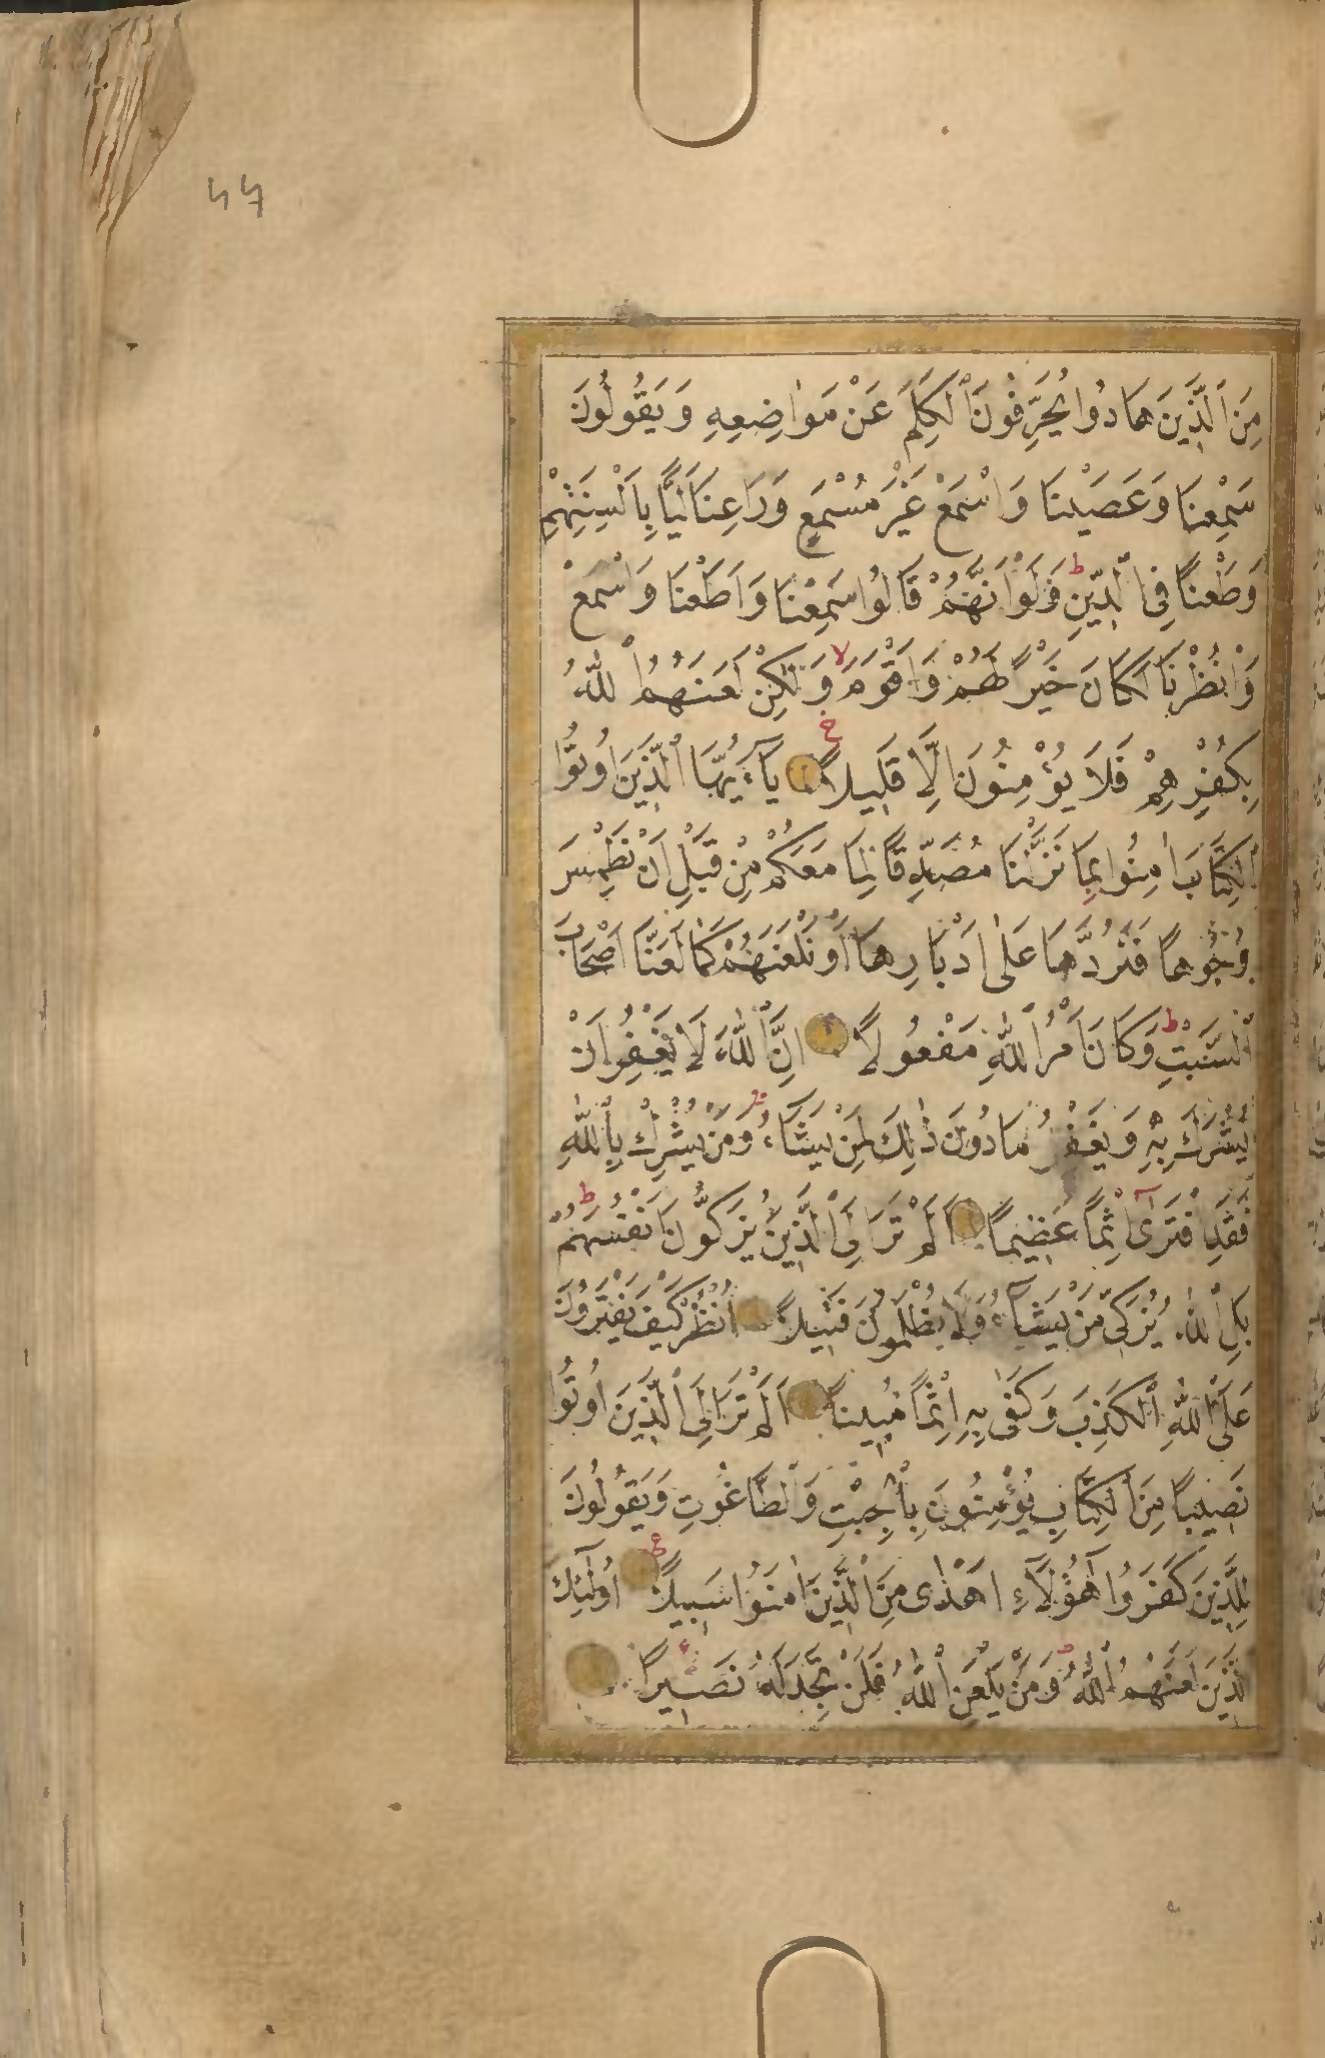 44
مِنَ ٱلَّذِينَ هَادُوا يُحَرِّفُونَ ٱلْكَلِمَ عَنْ مَوَاضِعِهِ وَيَقُولُونَ
سَمِعْنَا وَعَصَيْنَا وَاسْمَعْ غَيْرَ مُسْمَعٍ وَرَاعِنَا لَيًّا بِأَلْسِنَتِهِمْ
وَطَعْنًا فِى ٱلدِّينِ ط وَلَوْ اَنَّهُمْ قَالُوا سَمِعْنَا وَاَطَعْنَا وَاسْمَعْ
وَانْظُرْنَا لَكَانَ خَيْرًا لَهُمْ وَاَقْوَمَ لا وَلٰكِنْ لَعَنَهُمُ ٱللّٰهُ
بِكُفْرِهِمْ فَلَا يُؤْمِنُونَ اِلَّا قَلِيلًا يَآءَيُّهَا ٱلَّذِينَ اُوتُوا
ٱلْكِتَابَ اٰمِنُوا بِمَا نَزَّلْنَا مُصَدِّقًا لِمَا مَعَكُمْ مِنْ قَبْلِ اَنْ نَطْمِسَ
وُجُوهًا فَنَرُدَّهَا عَلٰى اَدْبَارِهَا اَوْ نَلْعَنَهُمْ كَمَا لَعَنَّا اَصْحَابَ
ٱلسَّبْتِ ط وَكَانَ اَمْرُ ٱللّٰهِ مَفْعُولًا اِنَّ ٱللّٰهَ لَا يَغْفِرُ اَنْ
يُشْرَكَ بِهِ وَيَغْفِرُ مَا دُونَ ذٰلِكَ لِمَنْ يَشَاءُ وَمَنْ يُشْرِكْ بِٱللّٰهِ
فَقَدِ افْتَرٰٓى اِثْمًا عَظِيمًا اَلَمْ تَرَ اِلَى ٱلَّذِينَ يُزَكُّونَ اَنْفُسَهُمْ ط
بَلِ ٱللّٰهُ يُزَكِّى مَنْ يَشَآءُ وَلَا يُظْلَمُونَ فَتِيلًا اُنْظُرْ كَيْفَ يَفْتَرُونَ
عَلَى ٱللّٰهِ ٱلْكَذِبَ وَكَفٰى بِهِ اِثْمًا مُبِينًا اَلَمْ تَرَ اِلَى ٱلَّذِينَ اُوتُوا
نَصِيبًا مِنَ ٱلْكِتَابِ يُؤْمِنُونَ بِٱلْجِبْتِ وَٱلطَّاغُوتِ وَيَقُولُونَ
لِلَّذِينَ كَفَرُوا هٰٓؤُلَآءِ اَهْدٰى مِنَ ٱلَّذِينَ اٰمَنُوا سَبِيلًا اُولٰٓئِكَ
ٱلَّذِينَ لَعَنَهُمُ ٱللّٰهُ وَمَنْ يَلْعَنِ ٱللّٰهُ فَلَنْ تَجِدَ لَهُ نَصِيرًا